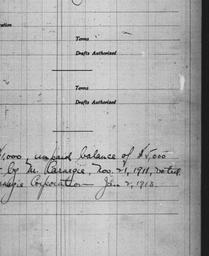 Terms
Drafts Authorized
Terms
Drafts Authorized
,000, unpaid balance of $5,000
by Mr. Carnegie, Nov. 21, 1911, 
Corporation — Jan 2, 1913.